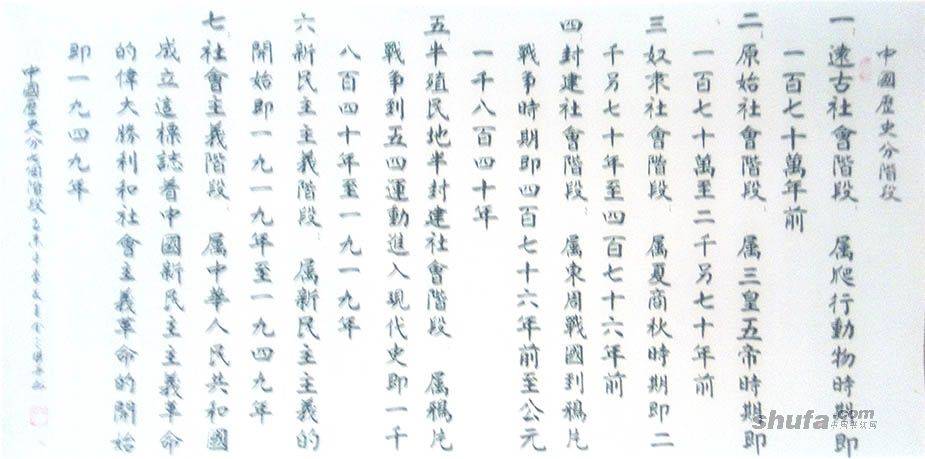 中國歷史分階段
一 遠古社會階段 属爬行動物時期即
一百七十萬年前
二 原始社會階段 属三皇五帝時期即
一百七十萬至二千另七十年前
三 奴隶社會階段 属夏商秋時期即二
千另七十年至四百七十六年前
四 封建社會階段 属東周戰國到鴉片
戰争時期即四百七十六年前至公元
一千八百四十年
五 半殖民地半封建社會階段 属鴉片
戰争到五四運動進入現代史即一千
八百四十年至一九一九年
六 新民主主義階段 属新民主主義的
開始即一九一九年至一九四九年
七 社會主義階段 属中華人民共和國
成立這標誌着中國新民主主義革命
的偉大勝利和社會主義革命的開始
即一九四九年
中國歷史分七個階段
shufa.com